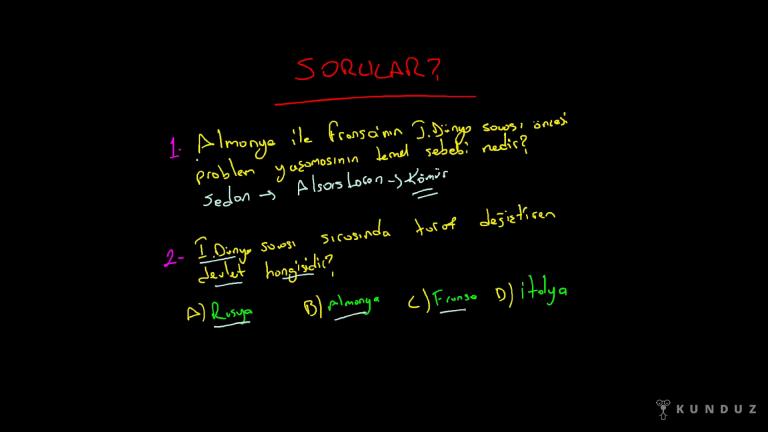 SORULAR?
1. Almanya ile Fransa'nın I.Dünya savaşı öncesi
problem yaşamasının temel sebebi nedir?
Sedan → Alsas Loren → Kömür
2- I.Dünya savaşı sırasında taraf değiştiren
devlet hangisidir?
A) Rusya B) Almanya C) Fransa D) italya
KUNDUZ